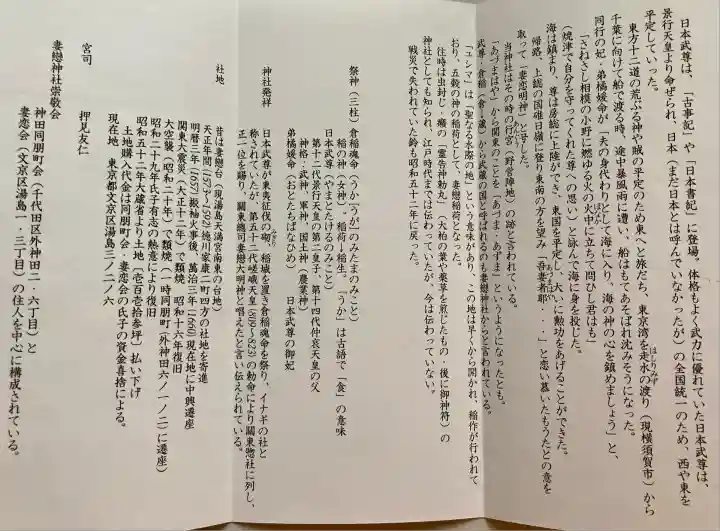 日本武尊は、「古事記」や「日本書記」に登場。体格もよく武力に優れていた日本武尊は、
景行天皇より命ぜられ、日本（まだ日本とは呼んでいなかったが）の全国統一のため、西や東を
平定していった。
東方十二道の荒ぶる神や賊の平定のため東へと旅だち、東京湾を走水の渡り（現横須賀市）から
はしりみず
千葉に向けて船で渡る時、途中暴風雨に遭い、船はもてあそばれ沈みそうになった。
同行の妃・弟橘媛命が「夫の身代わりとして海に入り、海の神の心を鎮めましょう」と、
「さねさし相模の小野に燃ゆる火の火中に立ちて問ひし君はも」
（焼津で自分を守ってくれた尊への思い）と詠んで海に身を投じた。
海は鎮まり、尊は房総に上陸ができ、東国を平定し、大いに勲功をあげることができた。
帰路、上総の国碓日嶺に登り東南の方を望み「吾妻者耶・・・」と恋い慕いたもうたとの意を
取って「妻恋明神」と号した。
当神社はその時の行宮（野営陣地）の跡と言われている。
「あづまはや」から関東のことを「あづま・あずま」というようになったとも。
武尊・倉稲（倉＝蔵）から武蔵の国と呼ばれるのも妻戀神社からと言われている。
「ユシマ」は「聖なる水際の地」という意味があり、この地は早くから開かれ、稲作が行われて
おり、五穀の神の稲荷として、妻戀稲荷となった。
往時は虫封じ・癪の「霊告神勅丸」（大柏の葉や薬草を煎じたもの・後に御神符）の
神社としても知られ、江戸時代までは伝わっていたが、今は伝わっていない。
戦災で失われていた鈴も昭和五十二年に戻った。
祭神（三柱）倉稲魂命（うか（うが）のみたまのみこと）
稲の神（女神）。稲荷＝稲生。「うか」は古語で「食」の意味
日本武尊（やまとたけるのみこと）
第十二代景行天皇の第二皇子、第十四代仲哀天皇の父
神格：武神、軍神、国土神（農業神）
弟橘媛命（おとたちばなひめ）　日本武尊の御妃
神社発祥　日本武尊が東夷征伐の砌、稲城を置き倉稲魂命を祭り、イナギの社と
みぎり
称されていたが、第五十二代嵯峨天皇（809~823）の勅命により關東惣社に列し、
正一位を賜り、關東總司妻戀大明神と唱えたと言い伝えられている。
社地　昔は妻戀台（現湯島天満宮南東の台地）
天正年間（1573～1592）徳川家康二町四方の社地を寄進
明暦三年（1657）振袖火事後、萬治三年（1660）現在地に中興遷座
関東大震災（大正十二年）で類焼　昭和十六年復旧
大空襲（昭和二十年）で類焼（一時同朋町〈外神田六ノ一ノ二〉に遷座）
昭和二十九年氏子有志の熱意により復旧
昭和五十二年大蔵省より土地（壱百壱拾参坪）払い下げ
土地購入代金は同朋町会・妻恋会の氏子の寶金喜捨による。
現在地　東京都文京区湯島三ノ二ノ六
宮司　押見友仁
妻戀神社崇敬会
神田同朋町会（千代田区外神田二・六丁目）と
妻恋会（文京区湯島一・三丁目）の住人を中心に構成されている。